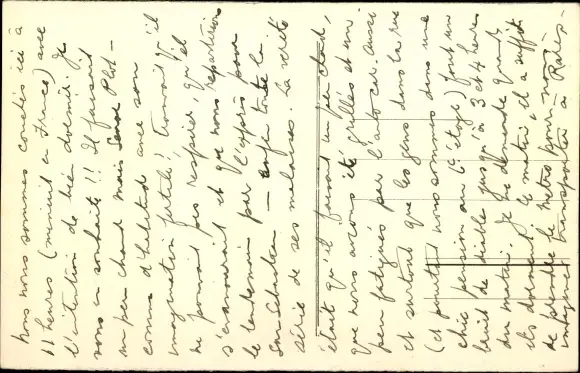 nous nous sommes couchés ici à
11 heures (minuit en France) avec
l'intention de bien dormir. Je
vous en souhaite !! Il faisait
un peu chaud mais
comme d'habitude avec son
imagination fertile ! trouvait qu'il
ne pouvait pas respirer, qu'il
s'évanouirait et que nous repartirions
le lendemain par l'après pour
San Sebastian — enfin toute la
série de ses malaises. La vérité
était qu'il faisait un peu chaud,
que nous avions été grillés et un
peu fatigués par l'autocar. aussi
et surtout que les gens dans la rue
(et pourtant nous sommes dans une
chic pension au 6e étage) font un
bruit de diable jusqu'à 3 et 4 heures
du matin. Je me demande quand
ils dorment. Le matin, il a suffit
de prendre le métro pour nous
transporter à